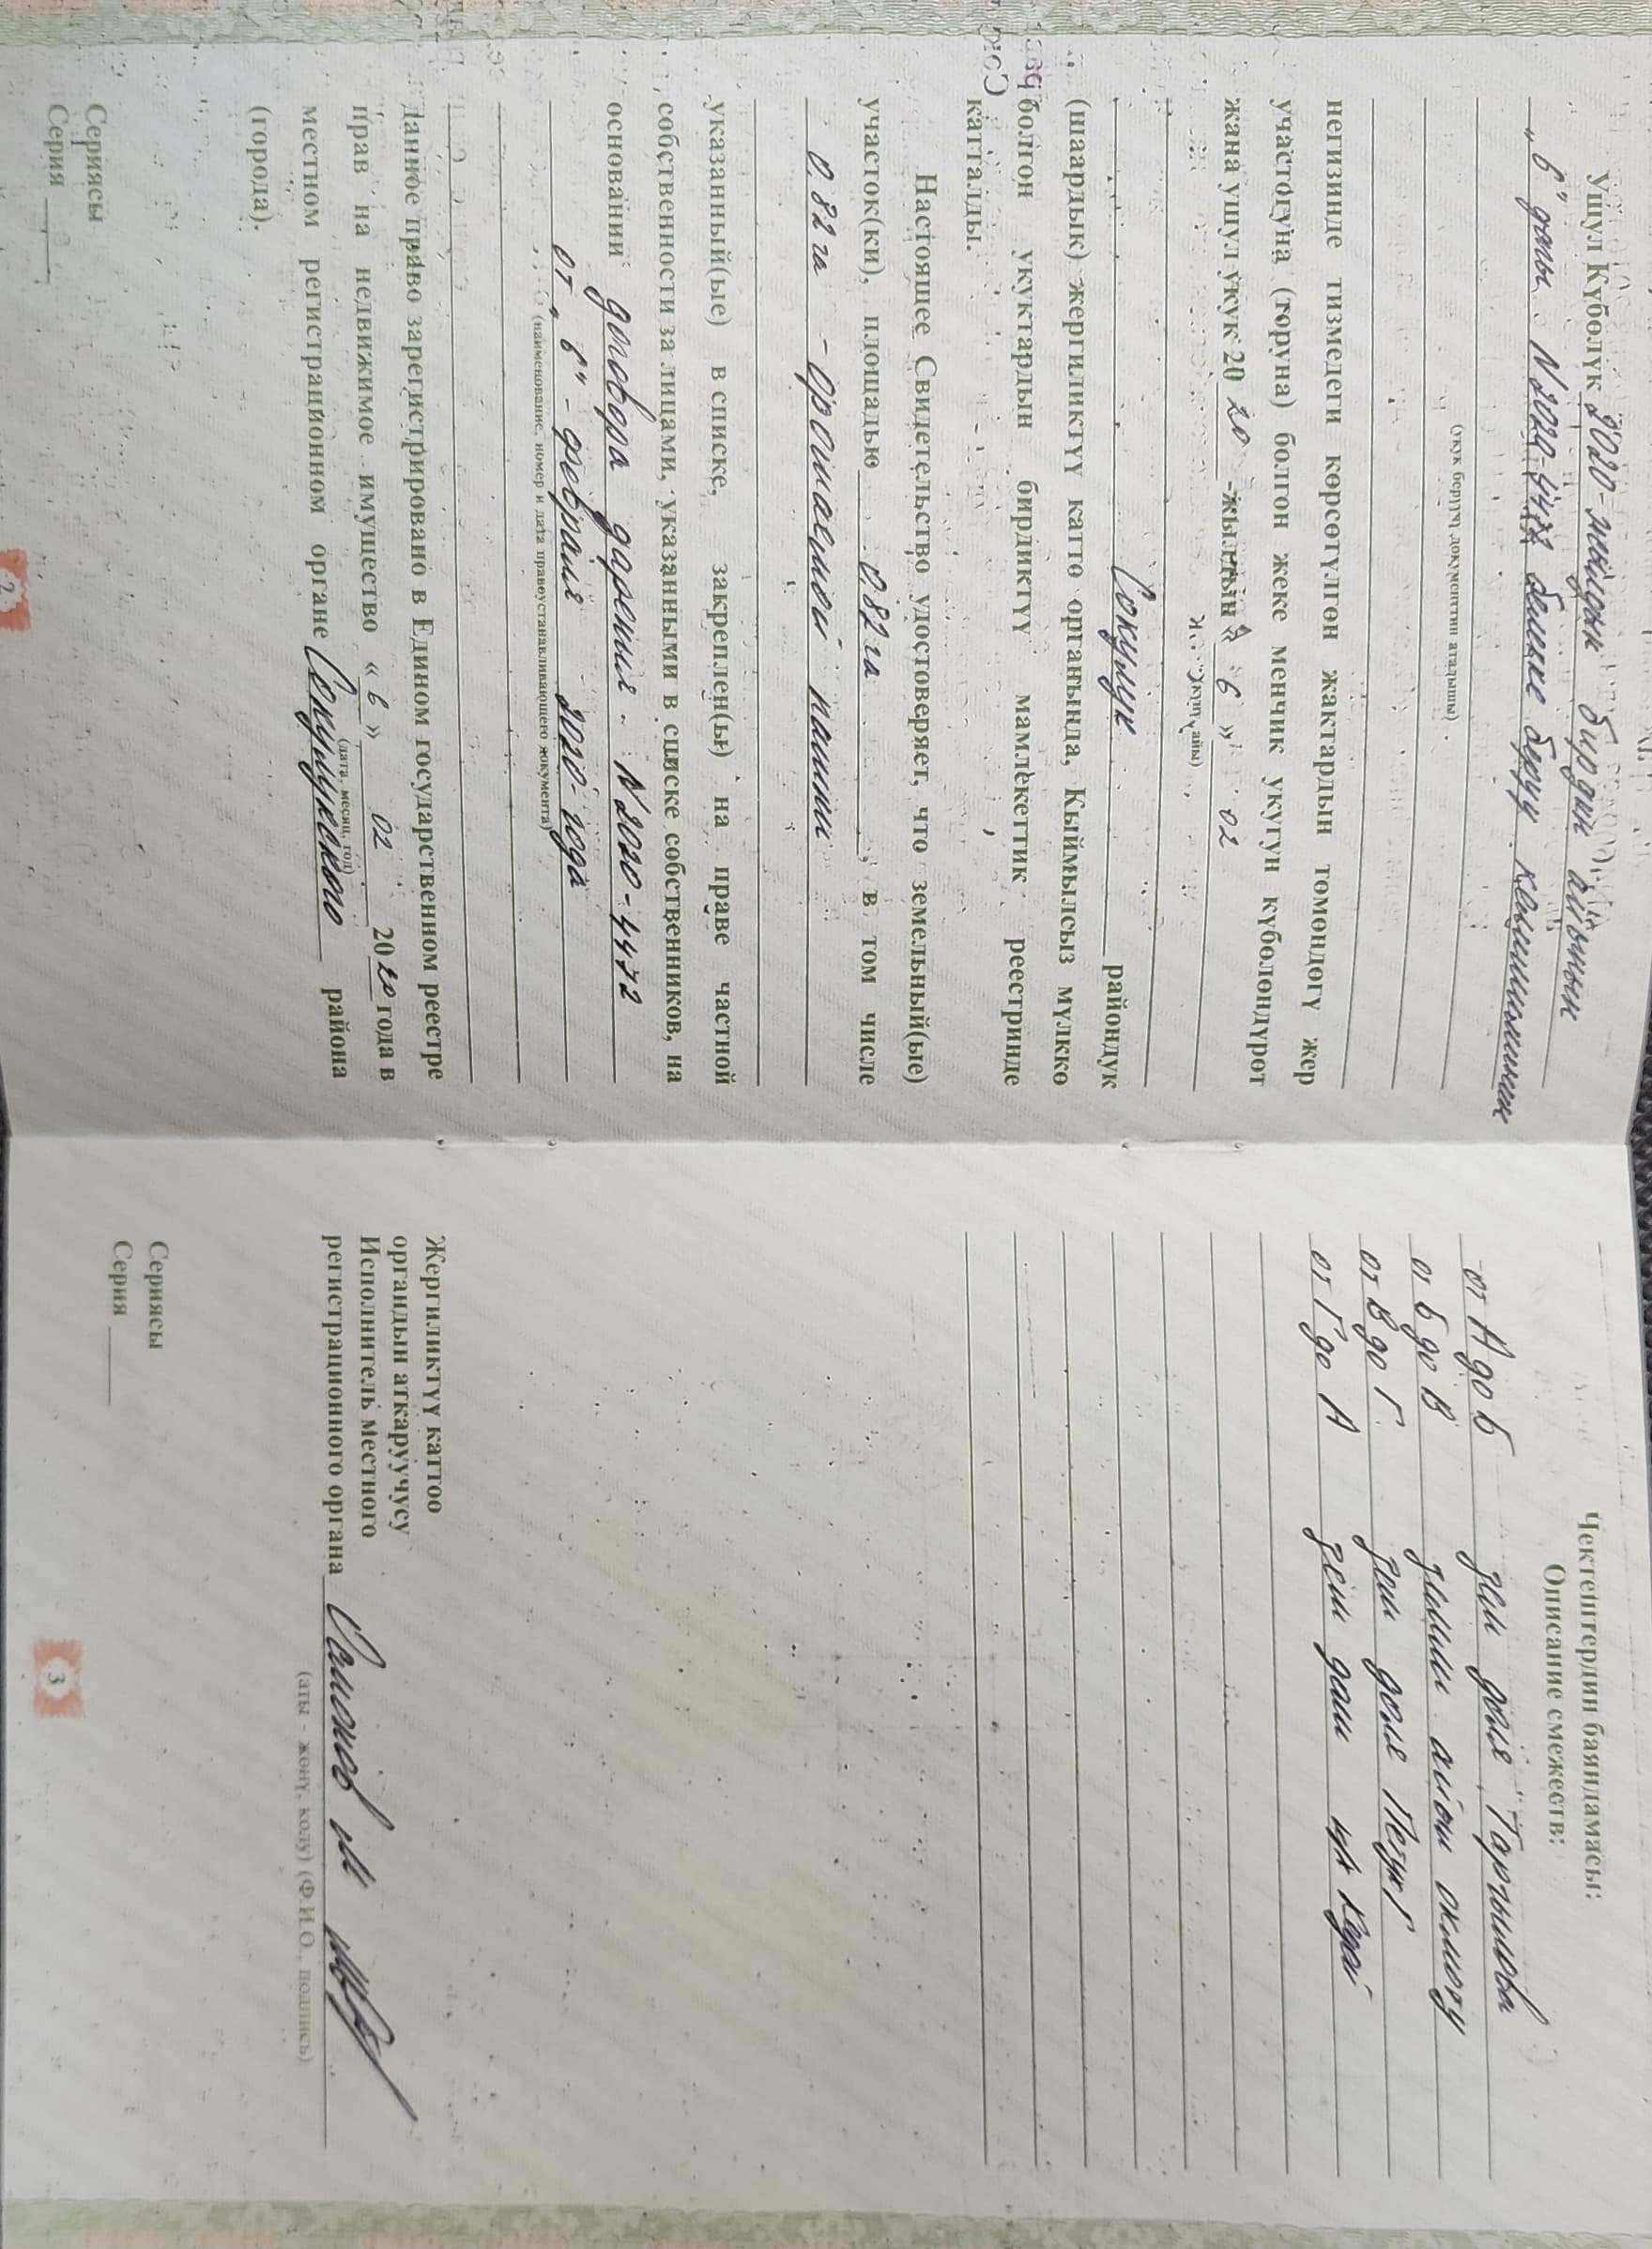 Ушул Күбөлүк 2020-жылдын бирдин айынын
„6" даты N2020-4472 белеке берүү келишиминин
(укук берүүчү документтин аталышы)
негизинде тизмедеги көрсөтүлгөн жактардын төмөндөгү жер
участогуна (торуна) болгон жеке менчик укугун күбөлөндүрөт
жана ушул укук 2020-жылдын « 6 » 02
(күнү, айы)
Сокулук райондук
(шаардык) жергиликтүү каттоо органында, Кыймылсыз мүлккө
болгон укуктардын бирдиктүү мамлекеттик реестринде
катталды.
Настоящее Свидетельство удостоверяет, что земельный(ые)
участок(ки), площадью 0.82 га, в том числе
0,82 га - орошаемой пашни
указанный(ые) в списке, закреплен(ы) на праве частной
собственности за лицами, указанными в списке собственников, на
основании договора дарения. N2020-4472
от „6" - февраля 2020- года
(наименование, номер и дата правоустанавливающего документа)
Данное право зарегистрировано в Едином государственном реестре
прав на недвижимое имущество « 6 » 02 2020 года в
(дата, месяц, год)
местном регистрационном органе Сокулукского района
(города).
Сериясы
Серия
2
Чектештердин баяндамасы:
Описание смежеств:
от А до Б зем доля
от Б до В земли айыл окмоту
от В до Г зем доля
от Г до А зем
Жергиликтүү каттоо
органдын аткаруучусу
Исполнитель местного
регистрационного органа
(аты - жөнү, колу) (Ф.И.О. подпись)
Сериясы
Серия
3